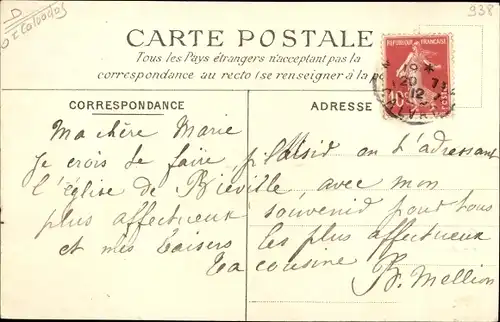 D
Calvados
938
CARTE POSTALE
Tous les Pays étrangers n'acceptant pas la
correspondance au recto (se renseigner à la
REPUBLIQUE FRANÇAISE
10
POSTES
20 - 7
12
CORRESPONDANCE
ADRESSE
Ma chère Marie
Je crois te faire plaisid en t'adressant
l'église de Biéville, avec mon
plus affectueux souvenid pour tous
et mes baisers les plus affectueux
Ta cousine B. Mellion